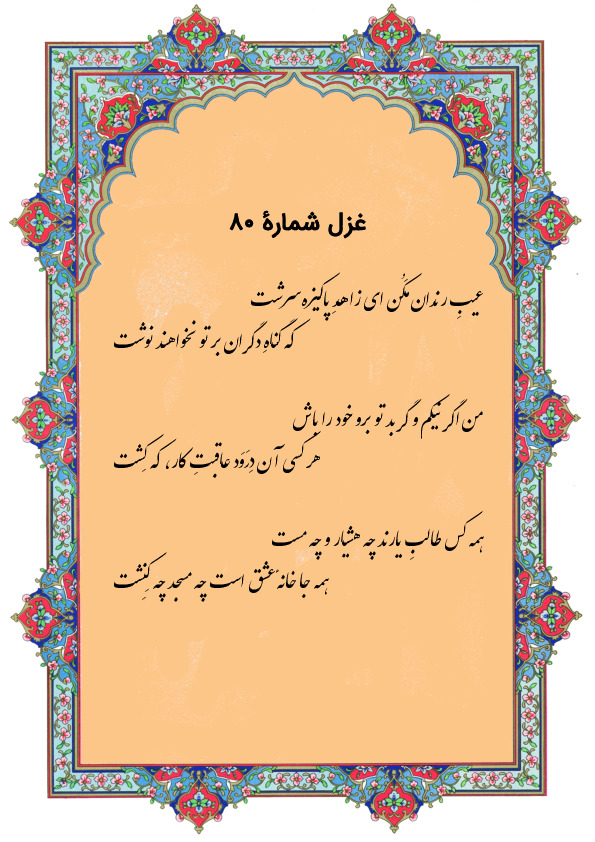 غزل شمارهٔ ۸۰
عیبِ رندان مَکُن ای زاهدِ پاکیزه سرشت
که گناهِ دگران بر تو نخواهند نوشت
من اگر نیکم و گر بد تو برو خود را باش
هر کسی آن دِرَوَد عاقبتِ کار، که کِشت
همه کس طالبِ یارند چه هشیار و چه مست
همه جا خانهٔ عشق است چه مسجد چه کِنِشت